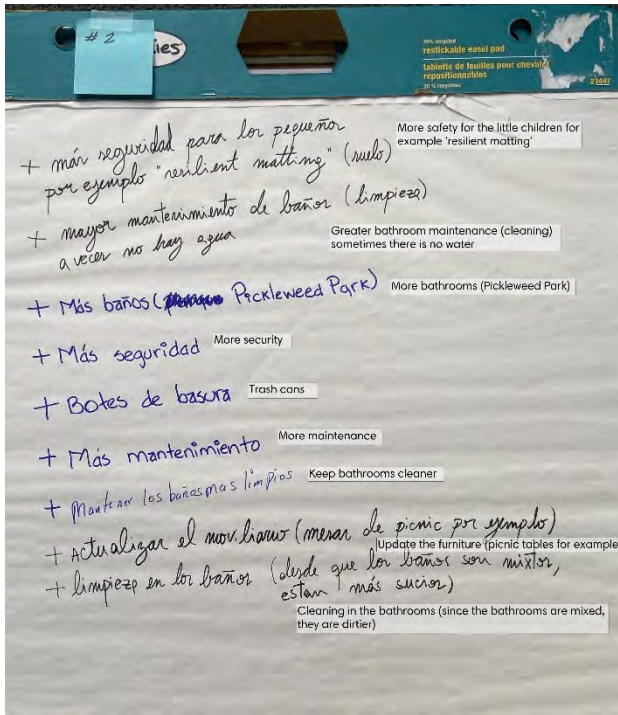 # 2
ies
30% recycled
restickable easel pad
tablette de feuilles pour chevalet
repositionnables
30 % recyclées
23447
+ más seguridad para los pequeños
por ejemplo "resilient matting" (suelo)
More safety for the little children for
example 'resilient matting'
+ mayor mantenimiento de baños (limpieza)
a veces no hay agua
Greater bathroom maintenance (cleaning)
sometimes there is no water
+ Más baños ( Pickleweed Park)
More bathrooms (Pickleweed Park)
+ Más seguridad
More security
+ Botes de basura
Trash cans
+ Más mantenimiento
More maintenance
+ Mantener los baños mas limpios
Keep bathrooms cleaner
+ Actualizar el mov.liario (mesas de picnic por ejemplo)
Update the furniture (picnic tables for example
+ limpieza en los baños (desde que los baños son mixtos,
estan más sucios)
Cleaning in the bathrooms (since the bathrooms are mixed,
they are dirtier)